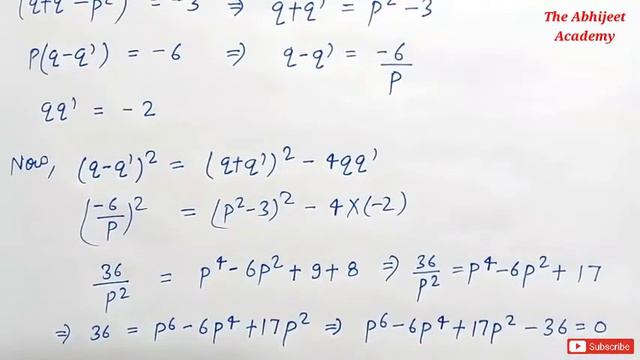 (q+q'-p²) = -3 ⇒ q+q' = p²-3
The Abhijeet
Academy
p(q-q') = -6 ⇒ q-q' = -6/p
qq' = -2
Now, (q-q')² = (q+q')² - 4qq'
(-6/p)² = (p²-3)² - 4×(-2)
36/p² = p⁴-6p²+9+8 ⇒ 36/p² = p⁴-6p²+17
⇒ 36 = p⁶-6p⁴+17p² ⇒ p⁶-6p⁴+17p²-36=0
Subscribe